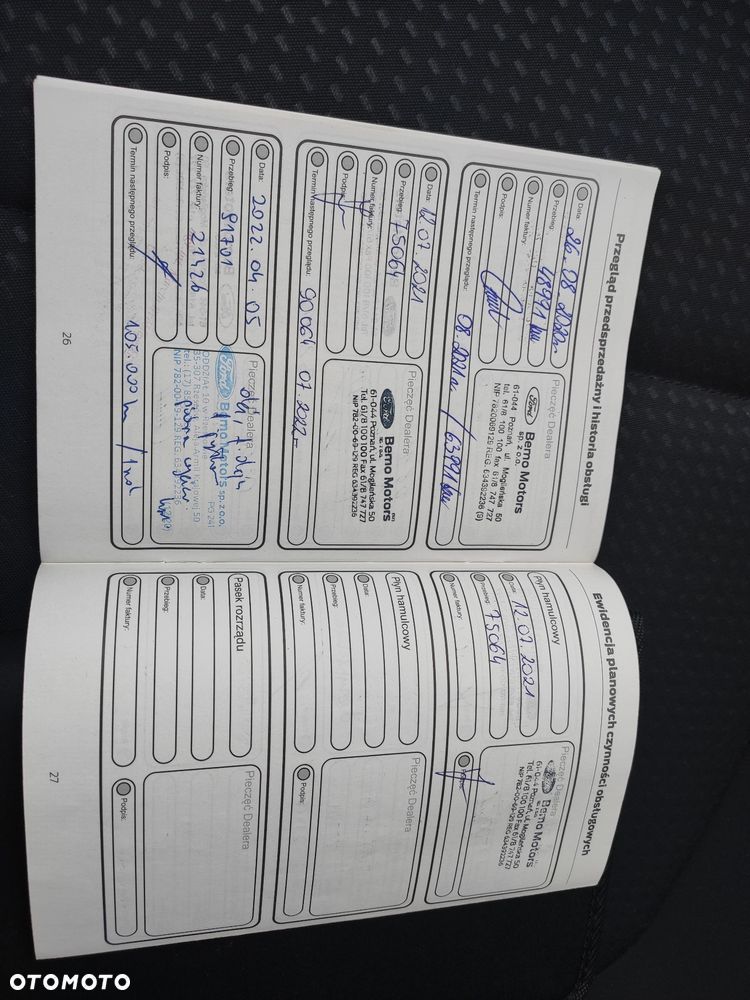 Przegląd przedsprzedażny i historia obsługi
Data: 26.08.2020r
Przebieg: 48971 km
Numer faktury:
Podpis:
Termin następnego przeglądu: 08.2021r / 63971 km
Pieczęć Dealera
Ford Bemo Motors
sp. z o.o.
61-044 Poznań, ul. Mogileńska 50
tel. 61/8 100 100 fax 61/8 747 727
NIP 7820069129 REG. 634392236 (9)
Data: 12.07.2021
Przebieg: 75064
Numer faktury:
Podpis:
Termin następnego przeglądu: 90064 07.2022
Pieczęć Dealera
Ford Bemo Motors
sp. z o.o.
61-044 Poznań, ul. Mogileńska 50
Tel. 61/8 100 100 Fax 61/8 747 727
NIP 782-00-69-129 REG 634392236
Data: 2022.04.05
Przebieg: 91701
Numer faktury: 21426
Podpis:
Termin następnego przeglądu: 105.000
Pieczęć Dealera
Ford Bemo Motors sp. z o.o.
26
Ewidencja planowych czynności obsługowych
Płyn hamulcowy
Data: 12.07.2021
Przebieg: 75064
Numer faktury:
Pieczęć Dealera
Bemo Motors
sp. z o.o.
61-044 Poznań, ul. Mogileńska 50
Tel. 61/8 100 100 Fax 61/8 747 727
NIP 782-00-69-129 REG 634392236
Podpis:
Płyn hamulcowy
Data:
Przebieg:
Numer faktury:
Pieczęć Dealera
Podpis:
Pasek rozrządu
Data:
Przebieg:
Numer faktury:
Pieczęć Dealera
Podpis:
27
OTOMOTO